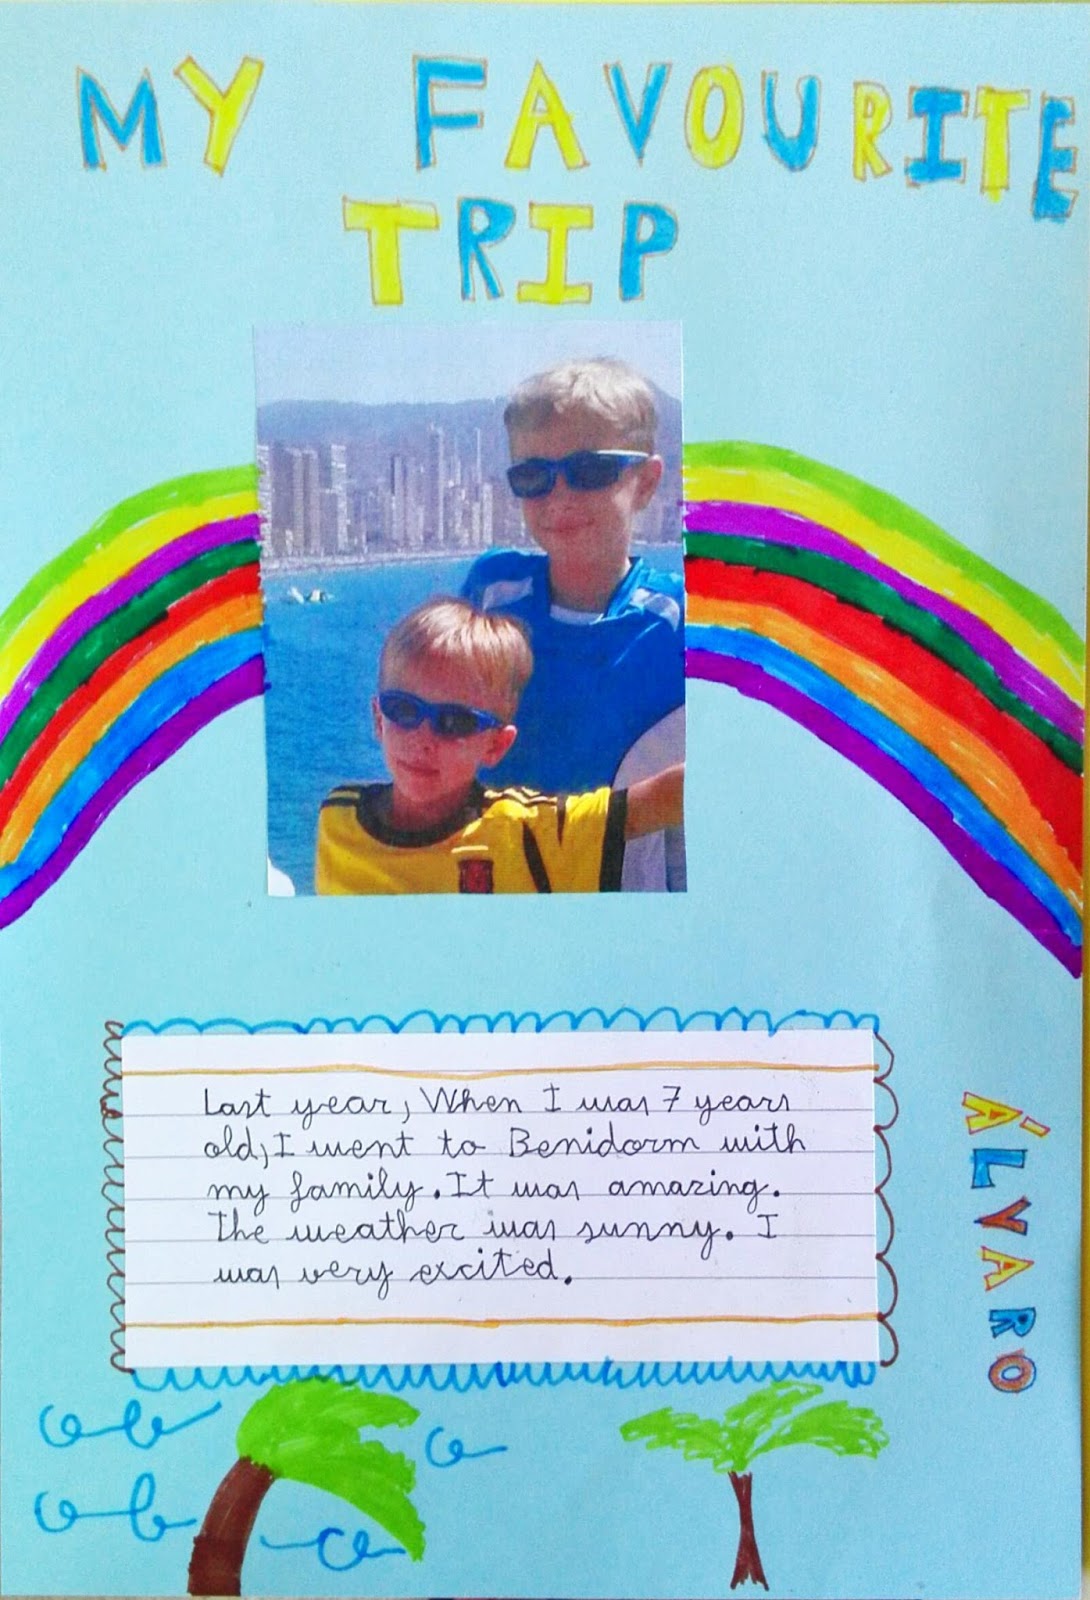 MY FAVOURITE
TRIP
Last year, When I was 7 years
old, I went to Benidorm with
my family. It was amazing.
The weather was sunny. I
was very excited.
ÁLVARO